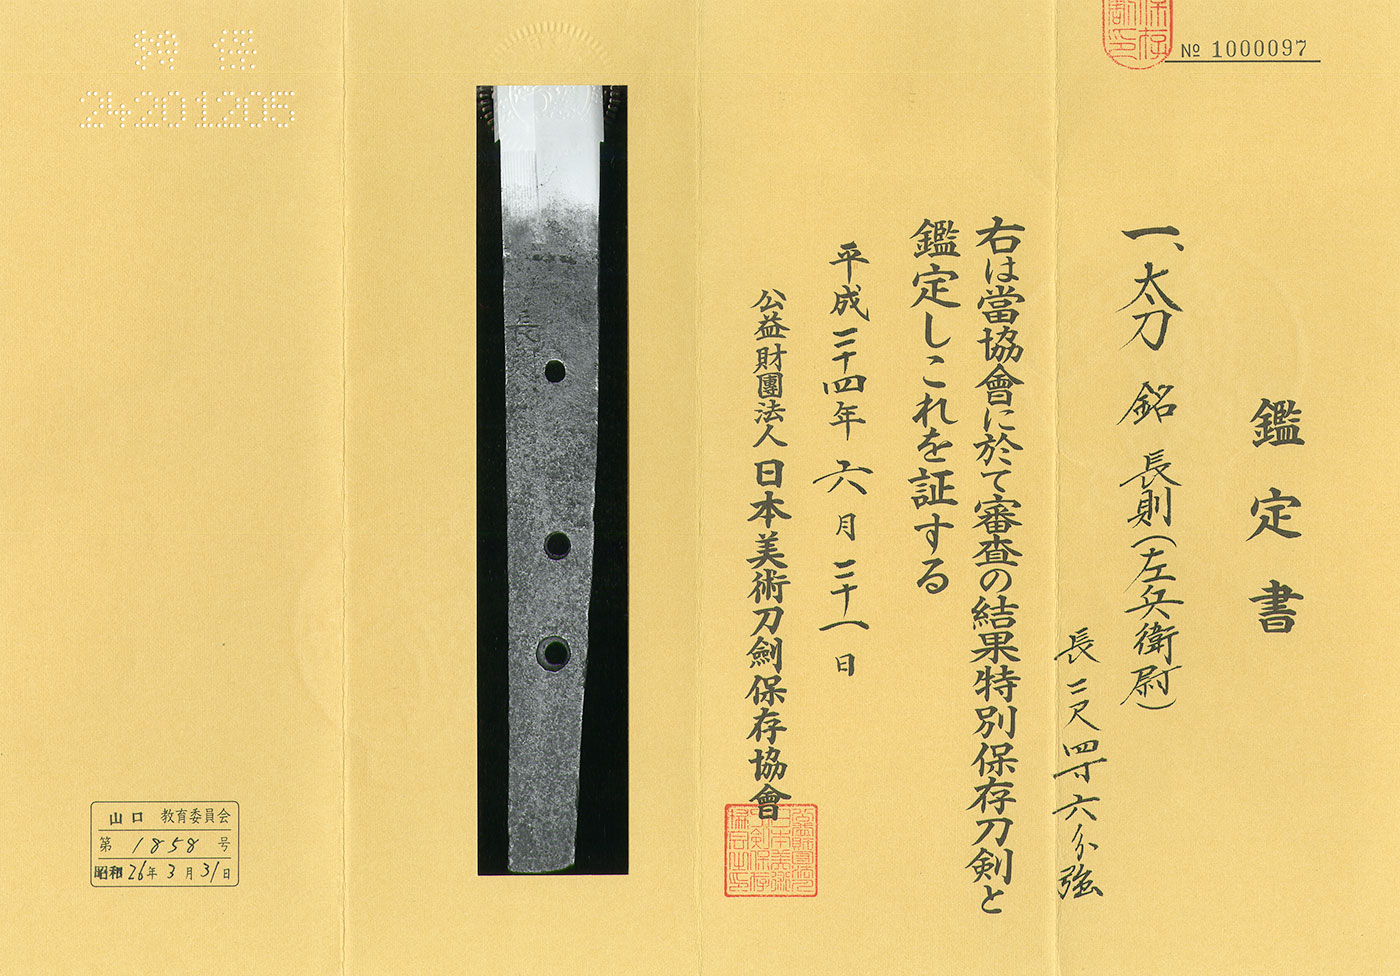 保存
割印
№ 1000097
鑑定書
一、太刀 銘 長則(左兵衛尉)
長 二尺四寸六分強
右は當協會に於て審査の結果特別保存刀剣と
鑑定しこれを証する
平成二十四年六月二十八日
公益財團法人 日本美術刀劍保存協會
長則
特保
24201205
山口 教育委員会
第 1858 号
昭和 26年 3月 31日